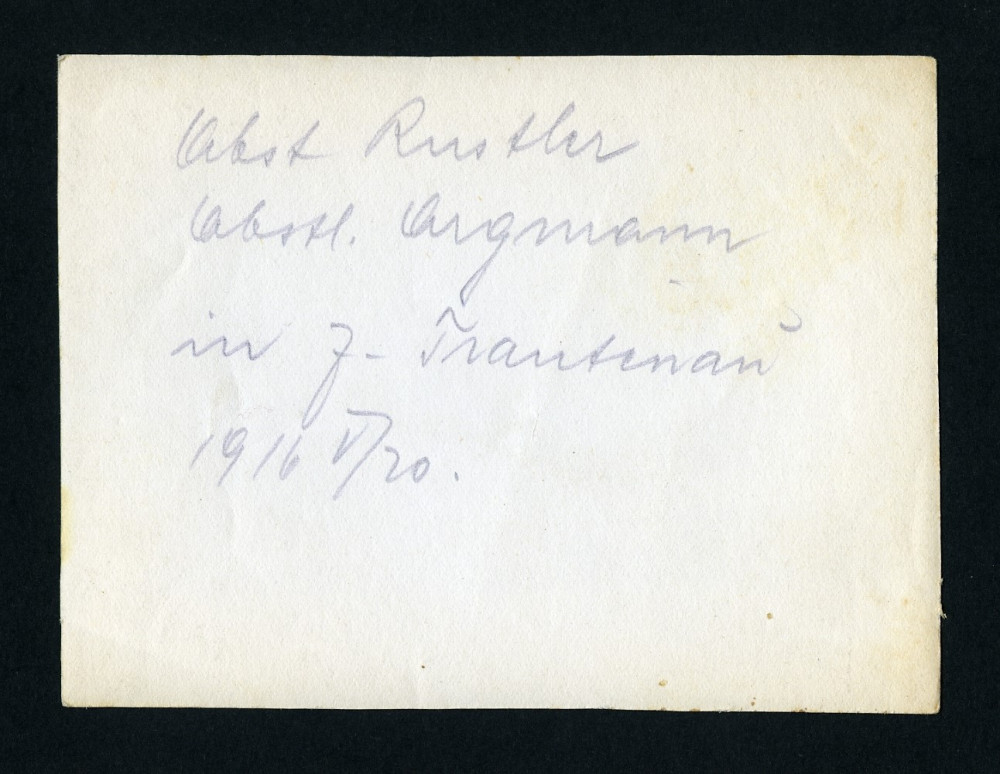 Obst Rustler
Obstl. Orgmann
in J- Trautenau
1916 V/20.